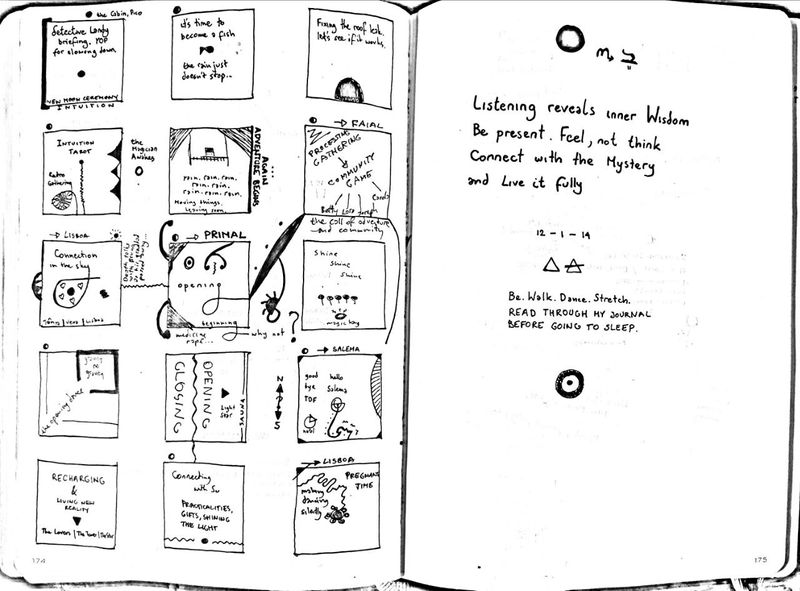 the Cabin, Pico
Detective Lordy
briefing. POP
for slowing down
NEW MOON CEREMONY
INTUITION
it's time to
become a fish
the rain just
doesn't stop...
Fixing the roof leak.
let's see if it works.
INTUITION
TAROT
Retro
Gathering
the
Magician
Awakes
rain. rain. rain.
rain. rain.
rain. rain. rain.
Moving things.
Leaving soon.
AGAIN ....
ADVENTURE BEGINS
→ FAIAL
PROCESSING
GATHERING
COMMUNITY
GAME
Betty Lora Joseph Carols
the call of adventure
and community
→ LISBOA
Connection
in the sky
Tônus / vera / Lisboa
→ PRIMAL
opening
beginning
medicine
rapé...
why not ?
Shine
Shine
Shine
magic bag
the opening dance
OPENING
CLOSING
Light
Star
SAUNA
N
S
→ SALEMA
good
bye
TDF
hello
Salema
RECHARGING
&
LIVING NEW
REALITY
The Lovers | The Tower | The Star
Connecting
with Su
PRACTICALITIES,
GIFTS, SHINING
THE LIGHT
→ LISBOA
PREGNANT
TIME
making
dancing
silently
174
Listening reveals inner Wisdom
Be present. Feel, not think
Connect with the Mystery
and Live it fully
12 - 1 - 14
Be. Walk. Dance. Stretch.
READ THROUGH MY JOURNAL
BEFORE GOING TO SLEEP.
175